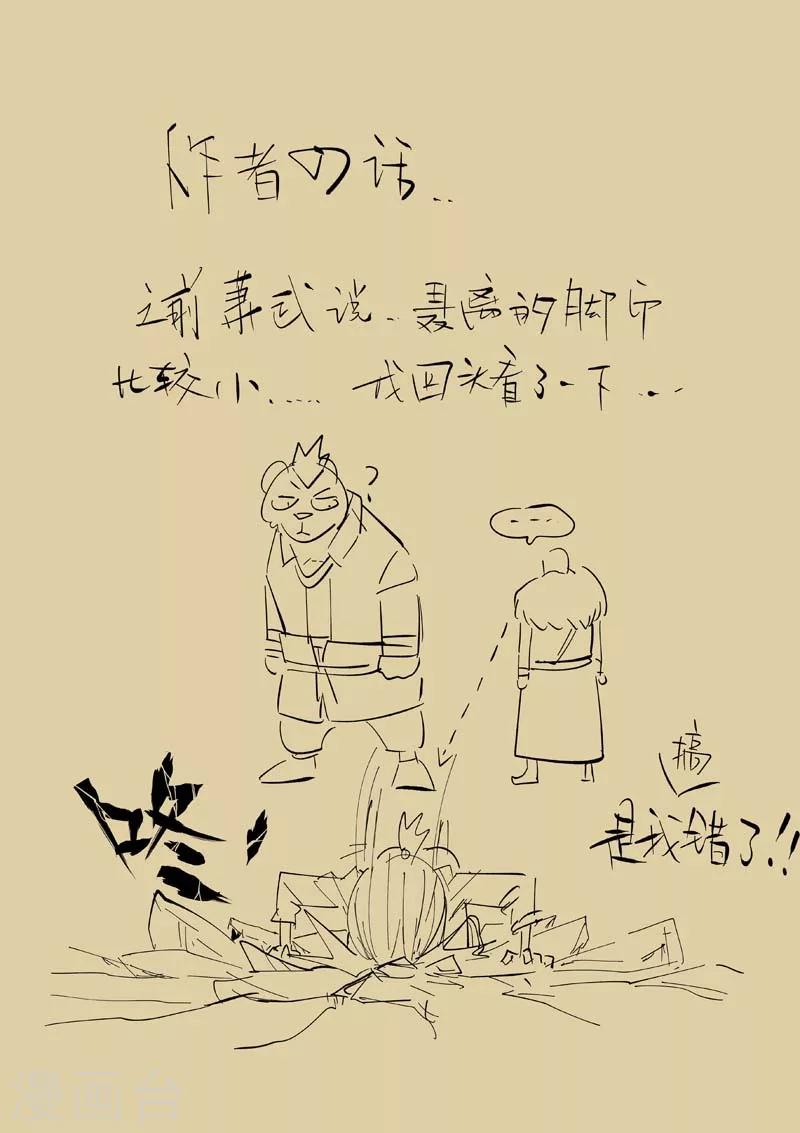 作者の话..
之前幕式说、聂离的脚印
比较小..... 我回头看了一下...
?
...
搞
是我错了!!
咚!
漫画台